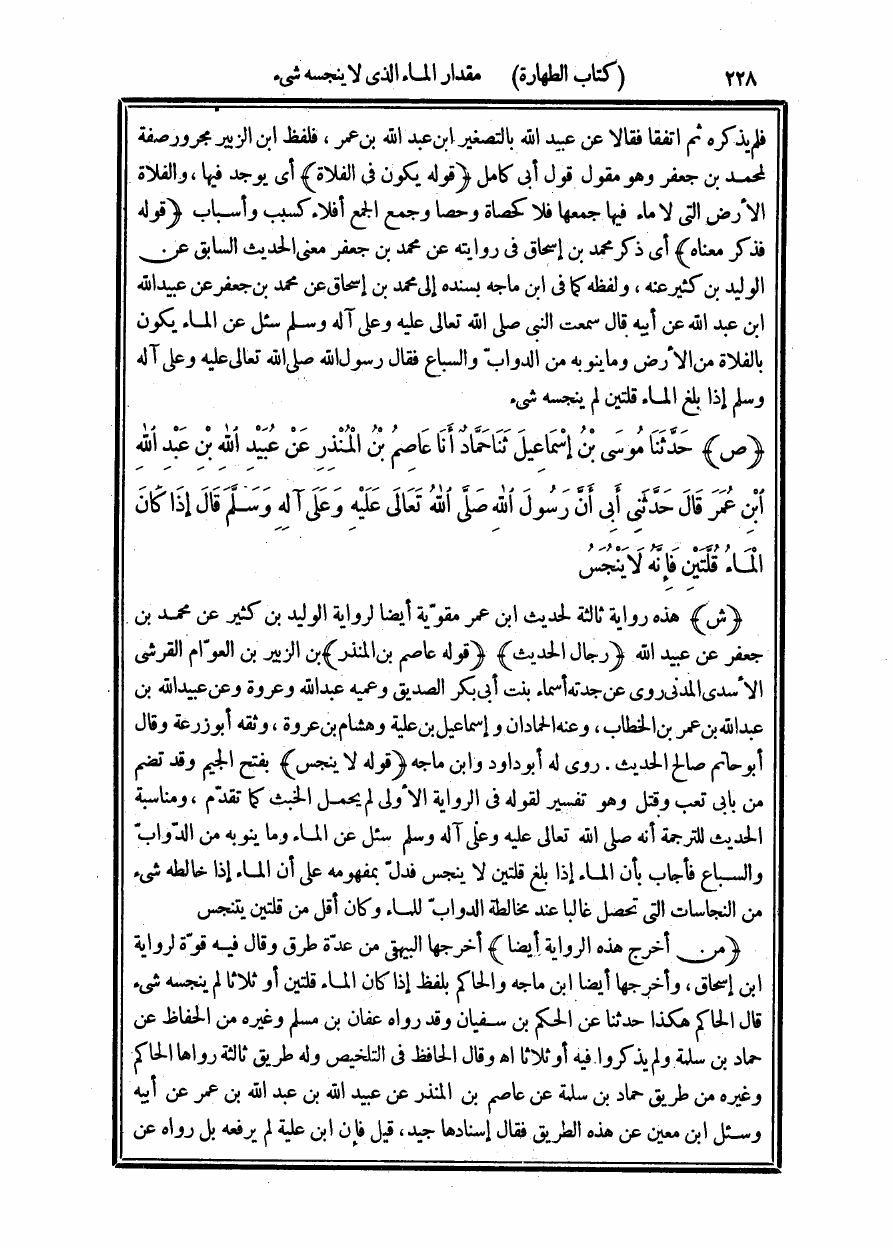 ٢٢٨ (كتاب الطهارة) مقدار الماء الذى لا ينجسه شىء
فلم يذكره ثم اتفقا فقالا عن عبيد الله بالتصغير ابن عبد الله بن عمر ، فلفظ ابن الزبير مجرور صفة
لمحمد بن جعفر وهو مقول قول أبى كامل ﴿قوله يكون فى الفلاة﴾ أى يوجد فيها ، والفلاة
الأرض التى لا ماء فيها جمعها فلا كحصاة وحصا وجمع الجمع أفلاء كسبب وأسباب ﴿قوله
فذكر معناه﴾ أى ذكر محمد بن إسحاق فى روايته عن محمد بن جعفر معنى الحديث السابق عن
الوليد بن كثير عنه ، ولفظه كما فى ابن ماجه بسنده إلى محمد بن إسحاق عن محمد بن جعفر عن عبيد الله
ابن عبد الله عن أبيه قال سمعت النبى صلى الله تعالى عليه وعلى آله وسلم سئل عن الماء يكون
بالفلاة من الأرض وما ينوبه من الدوابّ والسباع فقال رسول الله صلى الله تعالى عليه وعلى آله
وسلم إذا بلغ الماء قلتين لم ينجسه شىء
﴿ص﴾ حَدَّثَنَا مُوسَى بْنُ إِسْمَاعِيلَ ثَنَا حَمَّادٌ أَنَا عَاصِمُ بْنُ الْمُنْذِرِ عَنْ عُبَيْدِ اللهِ بْنِ عَبْدِ اللهِ
ابْنِ عُمَرَ قَالَ حَدَّثَنِى أَبِى أَنَّ رَسُولَ اللهِ صَلَّى اللهُ تَعَالَى عَلَيْهِ وَعَلَى آلِهِ وَسَلَّمَ قَالَ إِذَا كَانَ
الْمَاءُ قُلَّتَيْنِ فَإِنَّهُ لَا يَنْجُسُ
﴿ش﴾ هذه رواية ثالثة لحديث ابن عمر مقوّية أيضا لرواية الوليد بن كثير عن محمد بن
جعفر عن عبيد الله ﴿رجال الحديث﴾ ﴿قوله عاصم بن المنذر﴾ بن الزبير بن العوّام القرشى
الأسدى المدنى روى عن جدته أسماء بنت أبى بكر الصديق وعميه عبد الله وعروة وعن عبيد الله بن
عبد الله بن عمر بن الخطاب ، وعنه الحمادان وإسماعيل بن علية وهشام بن عروة ، وثقه أبو زرعة وقال
أبو حاتم صالح الحديث . روى له أبو داود وابن ماجه ﴿قوله لا ينجس﴾ بفتح الجيم وقد تضم
من بابى تعب وقتل وهو تفسير لقوله فى الرواية الأولى لم يحمل الخبث كما تقدّم ، ومناسبة
الحديث للترجمة أنه صلى الله تعالى عليه وعلى آله وسلم سئل عن الماء وما ينوبه من الدّوابّ
والسباع فأجاب بأن الماء إذا بلغ قلتين لا ينجس فدلّ بمفهومه على أن الماء إذا خالطه شىء
من النجاسات التى تحصل غالبا عند مخالطة الدوابّ للماء وكان أقل من قلتين يتنجس
﴿من أخرج هذه الرواية أيضا﴾ أخرجها البيهقى من عدّة طرق وقال فيه قوّة لرواية
ابن إسحاق ، وأخرجها أيضا ابن ماجه والحاكم بلفظ إذا كان الماء قلتين أو ثلاثا لم ينجسه شىء
قال الحاكم هكذا حدثنا عن الحكم بن سفيان وقد رواه عفان بن مسلم وغيره من الحفاظ عن
حماد بن سلمة ولم يذكروا فيه أو ثلاثا اه وقال الحافظ فى التلخيص وله طريق ثالثة رواها الحاكم
وغيره من طريق حماد بن سلمة عن عاصم بن المنذر عن عبيد الله بن عبد الله بن عمر عن أبيه
وسئل ابن معين عن هذه الطريق فقال إسنادها جيد ، قيل فإن ابن علية لم يرفعه بل رواه عن